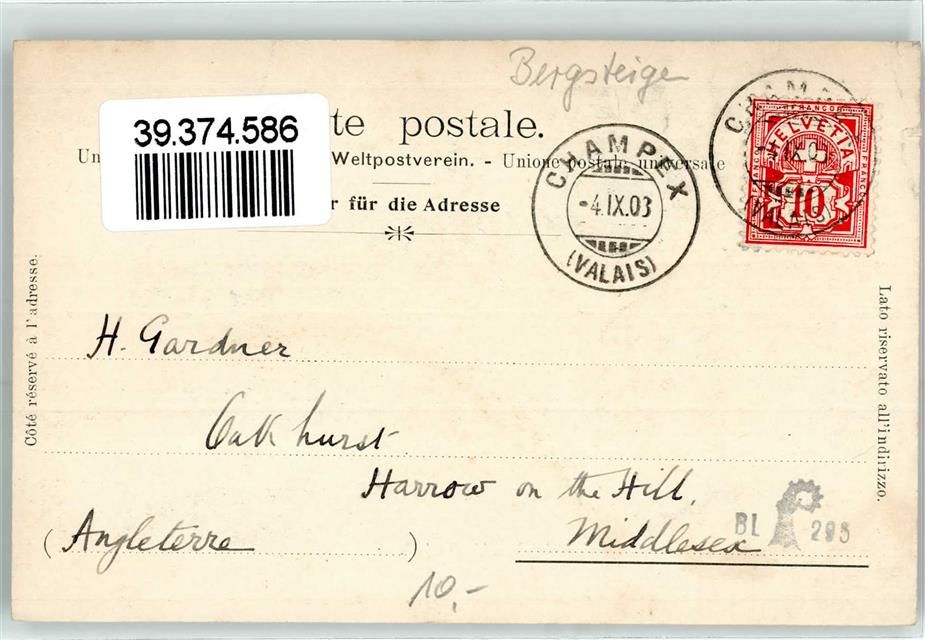 Bergsteiger
39.374.586
te postale.
Un Weltpostverein. - Unione postale universale
r für die Adresse
CHAMPEX
-4.IX.03
(VALAIS)
FRANCO
HELVETIA
10
Côté réservé à l'adresse.
Lato riservato all'indirizzo.
H. Gardner
Oakhurst
Harrow on the Hill,
(Angleterre) Middlesex
BL 285
10,-